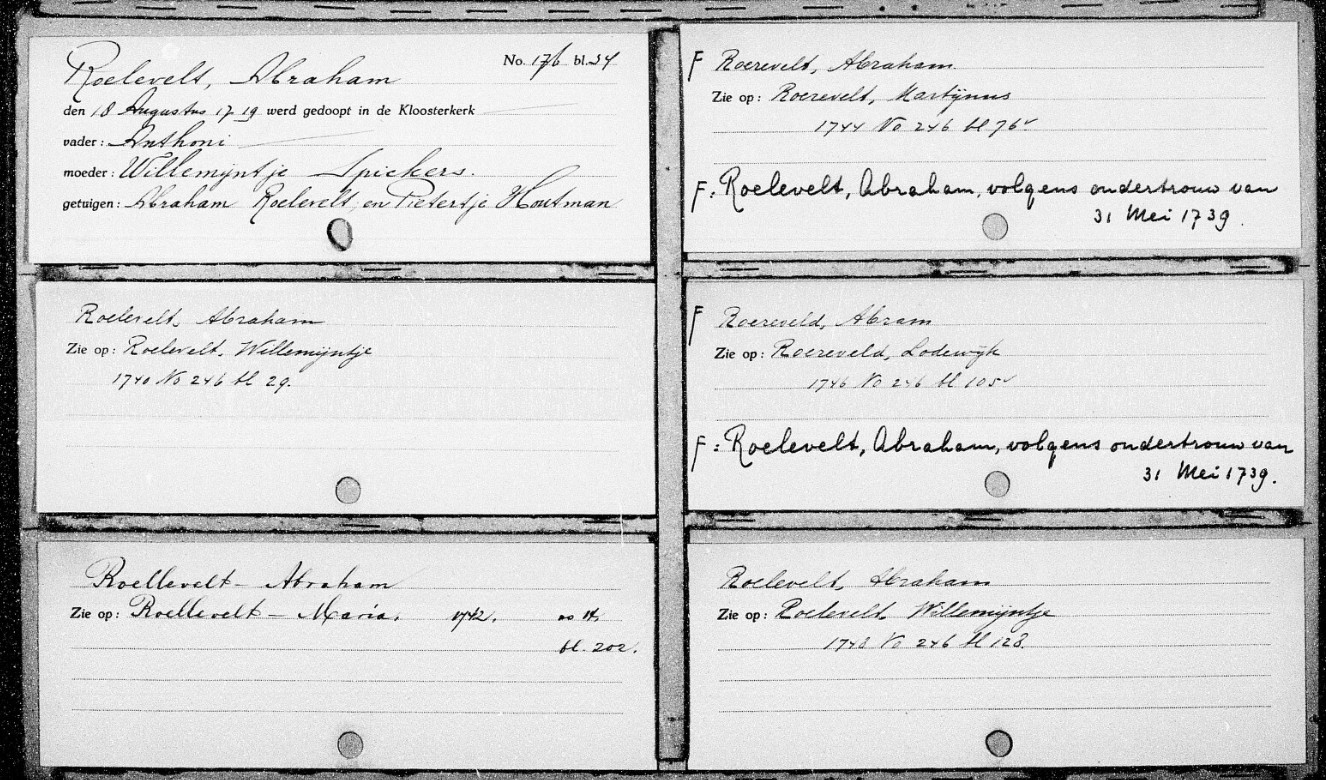 Roelevelt, Abraham No. 176 bl. 54
den 18 Augustus 1719 werd gedoopt in de Kloosterkerk
vader: Anthoni
moeder: Willemijntje Spiekers.
getuigen: Abraham Roelevelt, en Pietertje Houtman
Roelevelt, Abraham
Zie op: Roelevelt, Willemijntje
1740 No 246 bl 29.
Roellevelt - Abraham
Zie op: Roellevelt - Maria. 1742. no 14.
bl. 202.
F Roerevelt, Abraham
Zie op: Roerevelt, Martijnus
1744 No 246 bl 76v
F: Roelevelt, Abraham, volgens ondertrouw van
31 Mei 1739.
F Roereveld, Abram
Zie op: Roereveld, Lodewijk
1746 No 246 bl 105v
F: Roelevelt, Abraham, volgens ondertrouw van
31 Mei 1739.
Roelevelt, Abraham
Zie op: Roelevelt, Willemijntje
1748 No 246 bl 128.